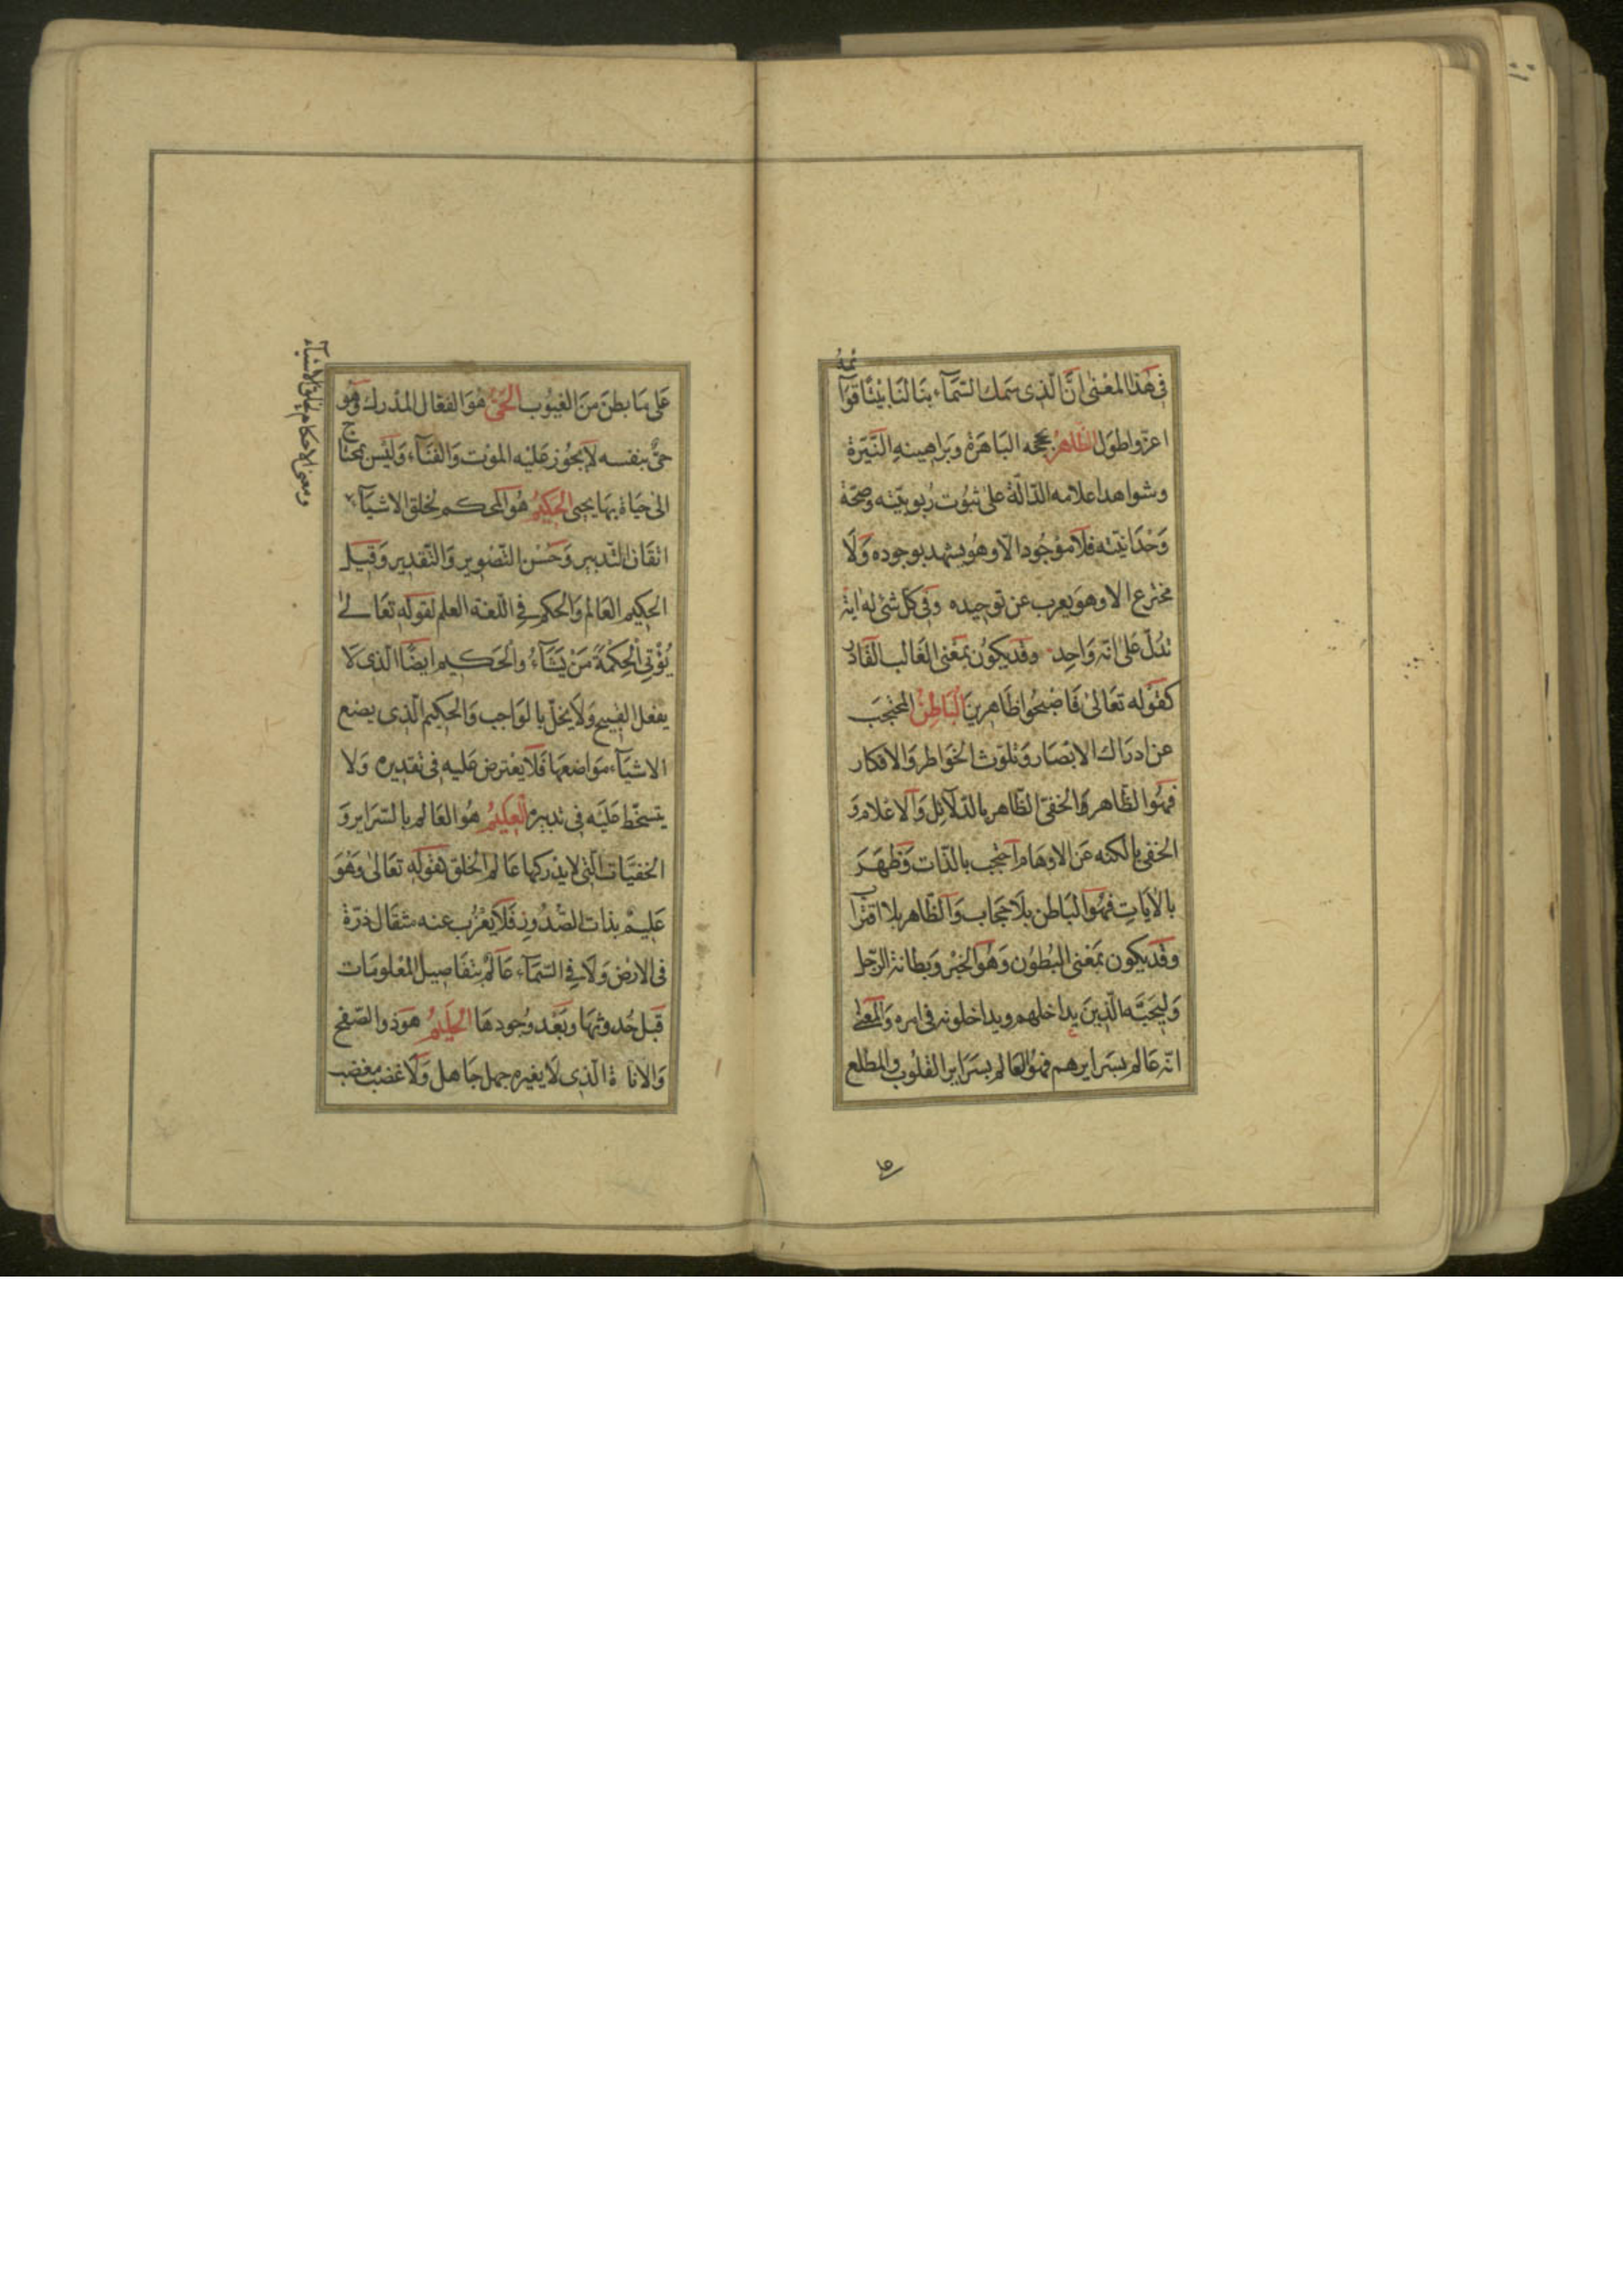 في هذا المعنى ان الذي سمك السماء بنا لنا بيتا قوائمه
اعز واطول الظاهر بحججه الباهرة وبراهينه النيرة
وشواهد اعلامه الدالة على ثبوت ربوبيته وصحة
وحدانيته فلا موجود الا وهو يشهد بوجوده ولا
مخترع الا وهو يعرب عن توحيده وفي كل شئ له اية
تدل على انه واحد وقد يكون بمعنى الغالب القادر
كقوله تعالى فاصبحوا ظاهرين الباطن المحتجب
عن ادراك الابصار وتلوث الخواطر والافكار
فهو الظاهر والخفى الظاهر بالدلائل والاعلام و
الخفى بالكنه عن الاوهام احتجب بالذات وظهر
بالايات فهو الباطن بلا حجاب والظاهر بلا اقتراب
وقد يكون بمعنى البطون وهو الخبر وبطانة الرجل
وليجته الذين يداخلهم ويداخلونه في امره والمعنى
انه عالم بسرايرهم فهو العالم بسراير القلوب والمطلع
على ما بطن من الغيوب الحي هو الفعال المدرك وهو
حي بنفسه لا يجوز عليه الموت والفناء وليس بمحتاج
الى حياة بها يحيى الحكيم هو المحكم لخلق الاشياء
ومعنى الاحكام لخلق الاشياء
اتقان التدبير وحسن التصوير والتقدير وقيل
الحكيم العالم والحكم في اللغة العلم لقوله تعالى
يؤتي الحكمة من يشاء والحكيم ايضا الذي لا
يفعل القبيح ولا يخل بالواجب والحكيم الذي يضع
الاشياء مواضعها فلا يعترض عليه في تقديره ولا
يتسخط عليه في تدبيره العليم هو العالم بالسراير و
الخفيات التي لا يدركها عالم الخلق لقوله تعالى وهو
عليم بذات الصدور فلا يعزب عنه مثقال ذرة
في الارض ولا في السماء عالم بتفاصيل المعلومات
قبل حدوثها وبعد وجودها الحليم هو ذو الصفح
والاناة الذي لا يغيره جهل جاهل ولا غضب مغضب